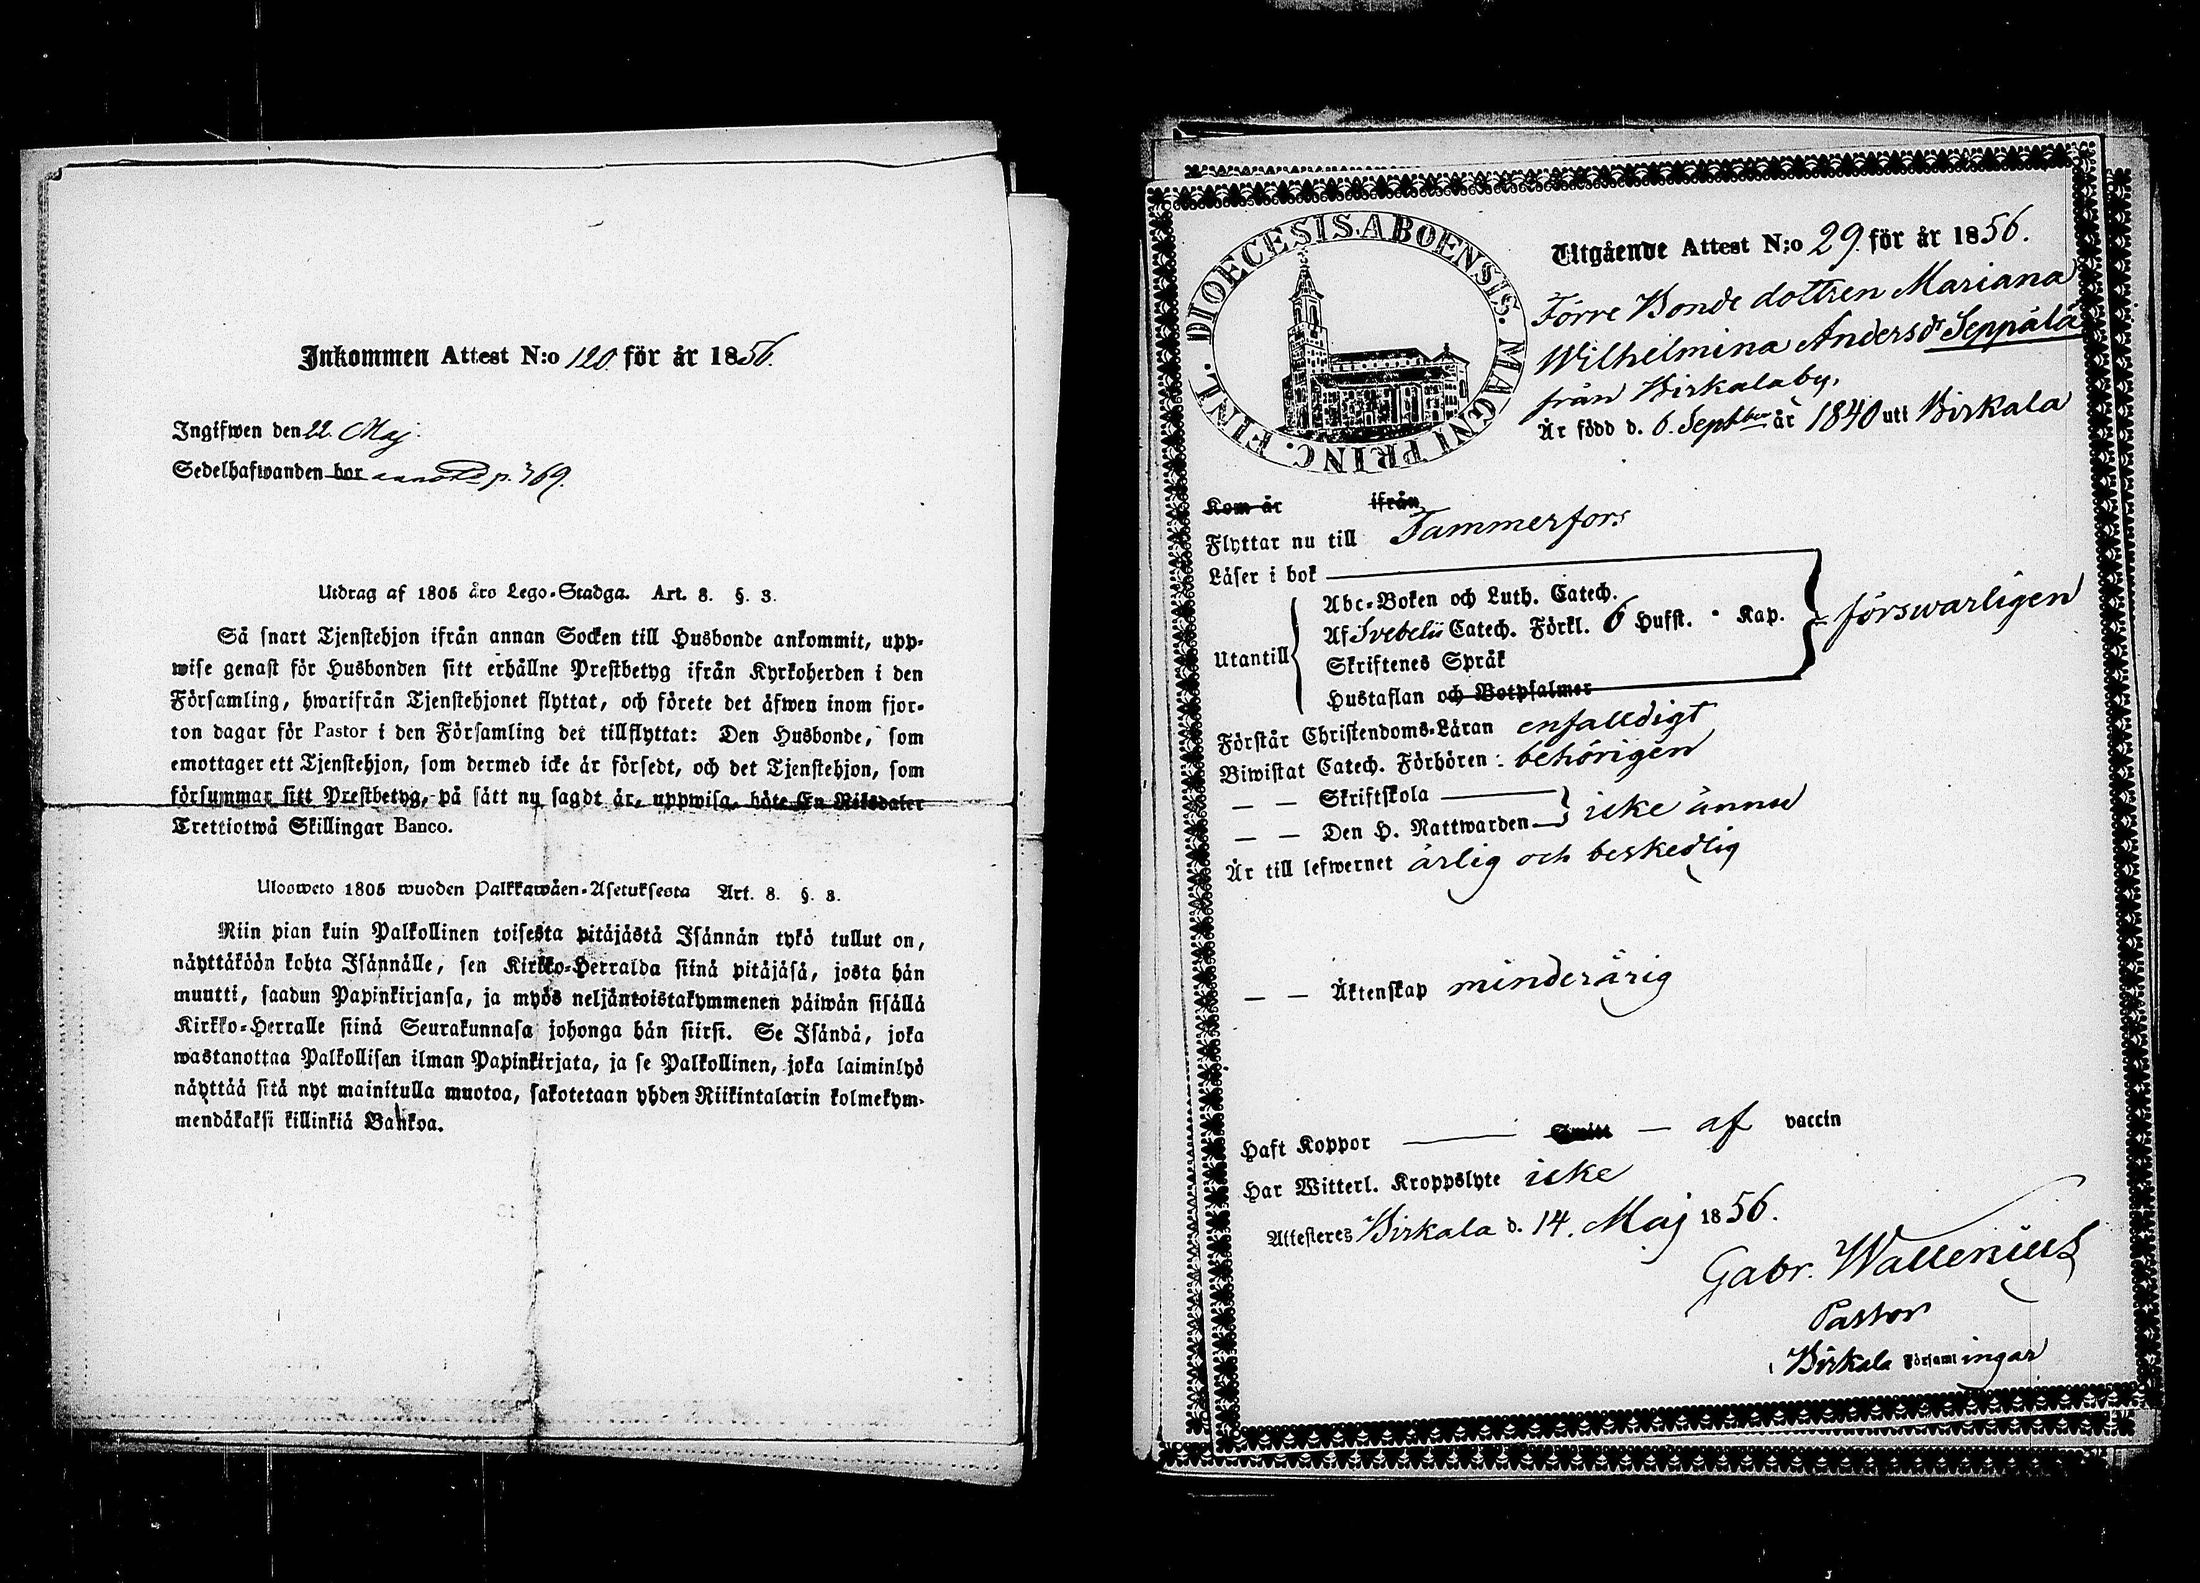 Inkommen Attest N:o 120 för år 1856.
Ingifwen den 22. Maj.
Sedelhafwanden bor annot. p. 369.
Utdrag af 1805 års Lego-Stadga. Art. 8. §. 3.
Så snart Tjenstehjon ifrån annan Socken till Husbonde ankommit, upp-
wise genast för Husbonden sitt erhållne Prestbetyg ifrån Kyrkoherden i den
Församling, hwarifrån Tjenstehjonet flyttat, och förete det äfwen inom fjor-
ton dagar för Pastor i den Församling det tillflyttat: Den Husbonde, som
emottager ett Tjenstehjon, som dermed icke är försedt, och det Tjenstehjon, som
försummar sitt Prestbetyg, på sätt nu sagdt är, uppwisa, böte En Riksdaler
Trettiotwå Skillingar Banco.
Ulosweto 1805 wuoden Palkkawäen-Asetuksesta Art. 8. §. 3.
Niin pian kuin Palkollinen toisesta pitäjästä Isännän tykö tullut on,
näyttäköön kohta Isännälle, sen Kirkko-Herralda siinä pitäjäsä, josta hän
muutti, saadun Papinkirjansa, ja myös neljäntoistakymmenen päiwän sisällä
Kirkko-Herralle siinä Seurakunnasa johonga hän siirsi. Se Isändä, joka
wastanottaa Palkollisen ilman Papinkirjata, ja se Palkollinen, joka laiminlyö
näyttää sitä nyt mainitulla muotoa, sakotetaan yhden Riikintalarin kolmekym-
mendäkaksi killinkiä Bankoa.
DIOECESIS. ABOENSIS. MAGNI PRINC. FINL.
Utgående Attest N:o 29. för år 1856.
Förre Bonde dottren Mariana
Wilhelmina Andersdr Seppälä
från Birkalaby,
Är född d. 6. Septber år 1840 uti Birkala
Kom år ifrån
Flyttar nu till Tammerfors
Läser i bok
Utantill
Abc-Boken och Luth. Catech.
Af Svebelii Catech. Förkl. 6 Hufst. Kap.
Skriftenes Språk
Hustaflan och Botpsalmer
förswarligen
Förstår Christendoms-Läran enfalldigt
Biwistat Catech. Förhören behörigen
— — Skriftskola
— — Den H. Nattwarden
icke ännu
Är till lefwernet ärlig och beskedlig
— — Äktenskap minderårig
Haft Koppor — Smitt — af vaccin
Har Witterl. Kroppslyte icke
Attesteres Birkala d. 14. Maj 1856.
Gabr. Wallenius
Pastor
Birkala Församlingar